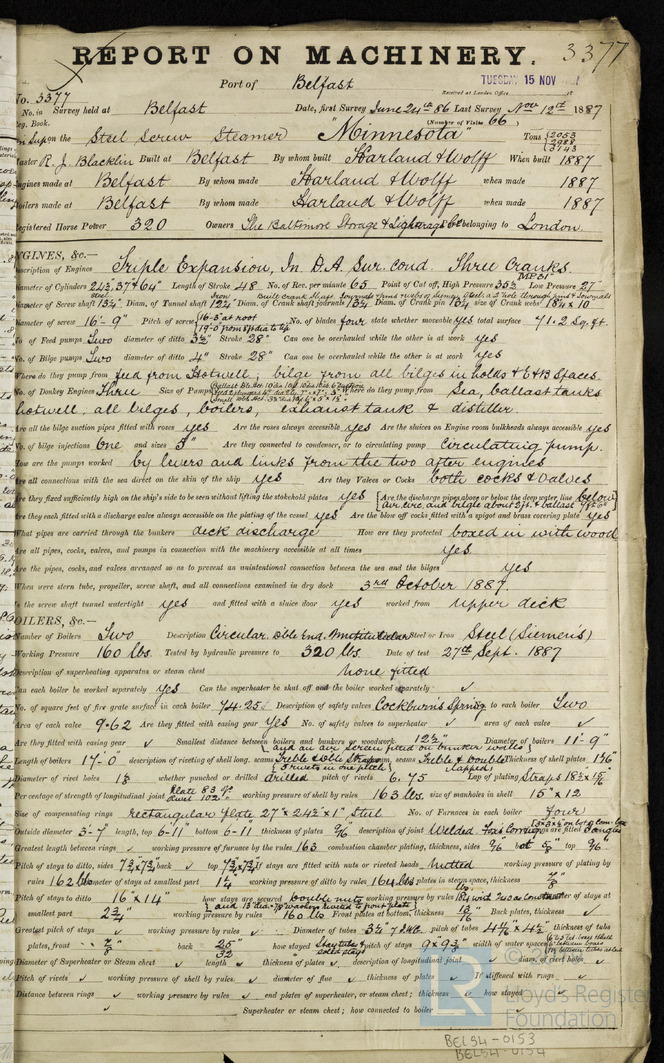 REPORT ON MACHINERY. 3377
Port of Belfast
TUESDAY 15 NOV
Received at London Office
No. 3377
No. in Survey held at Belfast Date, first Survey June 24th 86 Last Survey Nov 12th 1887
Reg. Book. (Number of Visits 66)
on the Steel Screw Steamer "Minnesota" Tons 2053 2988 3143
Master R. J. Blacklin Built at Belfast By whom built Harland & Wolff When built 1887
Engines made at Belfast By whom made Harland & Wolff when made 1887
Boilers made at Belfast By whom made Harland & Wolff when made 1887
Registered Horse Power 320 Owners The Baltimore Storage & Lighterage Co belonging to London
ENGINES, &c.—
Description of Engines Triple Expansion, In. D.A. Sur. Cond. Three Cranks
Diameter of Cylinders 24½, 37 & 64" Length of Stroke 48 No. of Rev. per minute 65 Point of Cut off, High Pressure 35½ Low Pressure 27"
Diameter of Screw shaft 13½ Diam. of Tunnel shaft 12¼ Diam. of Crank shaft journals 13½ Diam. of Crank pin size of Crank webs 18¼ x 10
Diameter of screw 16'-9" Pitch of screw No. of blades four state whether moveable yes total surface 71.2 Sq. ft.
No. of Feed pumps Two diameter of ditto 3½" Stroke 28" Can one be overhauled while the other is at work yes
No. of Bilge pumps Two diameter of ditto 4" Stroke 28" Can one be overhauled while the other is at work yes
Where do they pump from feed from Hotwell; bilge from all bilges in holds & E & B spaces.
No. of Donkey Engines Three Size of Pumps Where do they pump from Sea, ballast tanks
hotwell, all bilges, boilers, exhaust tank & distiller.
Are all the bilge suction pipes fitted with roses yes Are the roses always accessible yes Are the sluices on Engine room bulkheads always accessible yes
No. of bilge injections One and sizes 5" Are they connected to condenser, or to circulating pump Circulating pump.
How are the pumps worked by levers and links from the two after engines
Are all connections with the sea direct on the skin of the ship yes Are they Valves or Cocks both cocks & valves
Are they fixed sufficiently high on the ship's side to be seen without lifting the stokehold plates yes Are the discharge pipes above or below the deep water line below
Are they each fitted with a discharge valve always accessible on the plating of the vessel yes Are the blow off cocks fitted with a spigot and brass covering plate yes
What pipes are carried through the bunkers deck discharge How are they protected boxed in with wood
Are all pipes, cocks, valves, and pumps in connection with the machinery accessible at all times yes
Are the pipes, cocks, and valves arranged so as to prevent an unintentional connection between the sea and the bilges yes
When were stern tube, propeller, screw shaft, and all connections examined in dry dock 3rd October 1887.
Is the screw shaft tunnel watertight yes and fitted with a sluice door yes worked from upper deck
BOILERS, &c.—
Number of Boilers Two Description Circular. Dble End. Multitubular Steel or Iron Steel (Siemens)
Working Pressure 160 lbs. Tested by hydraulic pressure to 320 lbs. Date of test 27th Sept. 1887
Description of superheating apparatus or steam chest none fitted
Can each boiler be worked separately yes Can the superheater be shut off and the boiler worked separately ✓
No. of square feet of fire grate surface in each boiler 74.25 Description of safety valves Cockburn's Spring to each boiler Two
Area of each valve 9.62 Are they fitted with easing gear yes No. of safety valves to superheater ✓ area of each valve ✓
Are they fitted with easing gear ✓ Smallest distance between boilers and bunkers or woodwork 12½" Diameter of boilers 11'-9"
and an air screen fitted on bunker walls
Length of boilers 17'-0 description of riveting of shell long. seams Treble & Dble Straps circum. seams Treble & Double Lapped Thickness of shell plates
Diameter of rivet holes whether punched or drilled drilled pitch of rivets 6.75 Lap of plating Straps
Percentage of strength of longitudinal joint plate 83 working pressure of shell by rules 163 lbs. size of manholes in shell 15" x 12
Size of compensating rings rectangular plate 27" x 24½ x 1" Steel No. of Furnaces in each boiler Four
Outside diameter 3-7 length, top 6-11" bottom 6-11 thickness of plates description of joint Welded
Greatest length between rings ✓ working pressure of furnace by the rules 163 combustion chamber plating, thickness, sides back top
Pitch of stays to ditto, sides 7¾ x 7¾ back ✓ top 7¾ x 7¾ If stays are fitted with nuts or riveted heads nutted working pressure of plating by
rules 162 lbs Diameter of stays at smallest part 1¼ working pressure of ditto by rules 164 lbs plates in steam space, thickness ⅞
Pitch of stays to ditto 16 x 14" how stays are secured Double nuts working pressure by rules diameter of stays at
smallest part working pressure by rules 160 lbs Front plates at bottom, thickness 13/16 Back plates, thickness ✓
Greatest pitch of stays ✓ working pressure by rules ✓ Diameter of tubes 3½ pitch of tubes 4½ x 4½ thickness of tubes
plates, front ⅞ back 25/32 how stayed Stay tubes pitch of stays 9" x 9¾ width of water spaces
Diameter of Superheater or Steam chest ✓ length ✓ thickness of plates ✓ description of longitudinal joint ✓ diam. of rivet holes ✓
Pitch of rivets ✓ working pressure of shell by rules ✓ diameter of flue ✓ thickness of plates ✓ If stiffened with rings ✓
Distance between rings ✓ working pressure by rules ✓ end plates of superheater, or steam chest; thickness ✓ how stayed
Superheater or steam chest; how connected to boiler ✓
LR
Lloyd's Register
Foundation
BELS4-0153
BELS4-0154